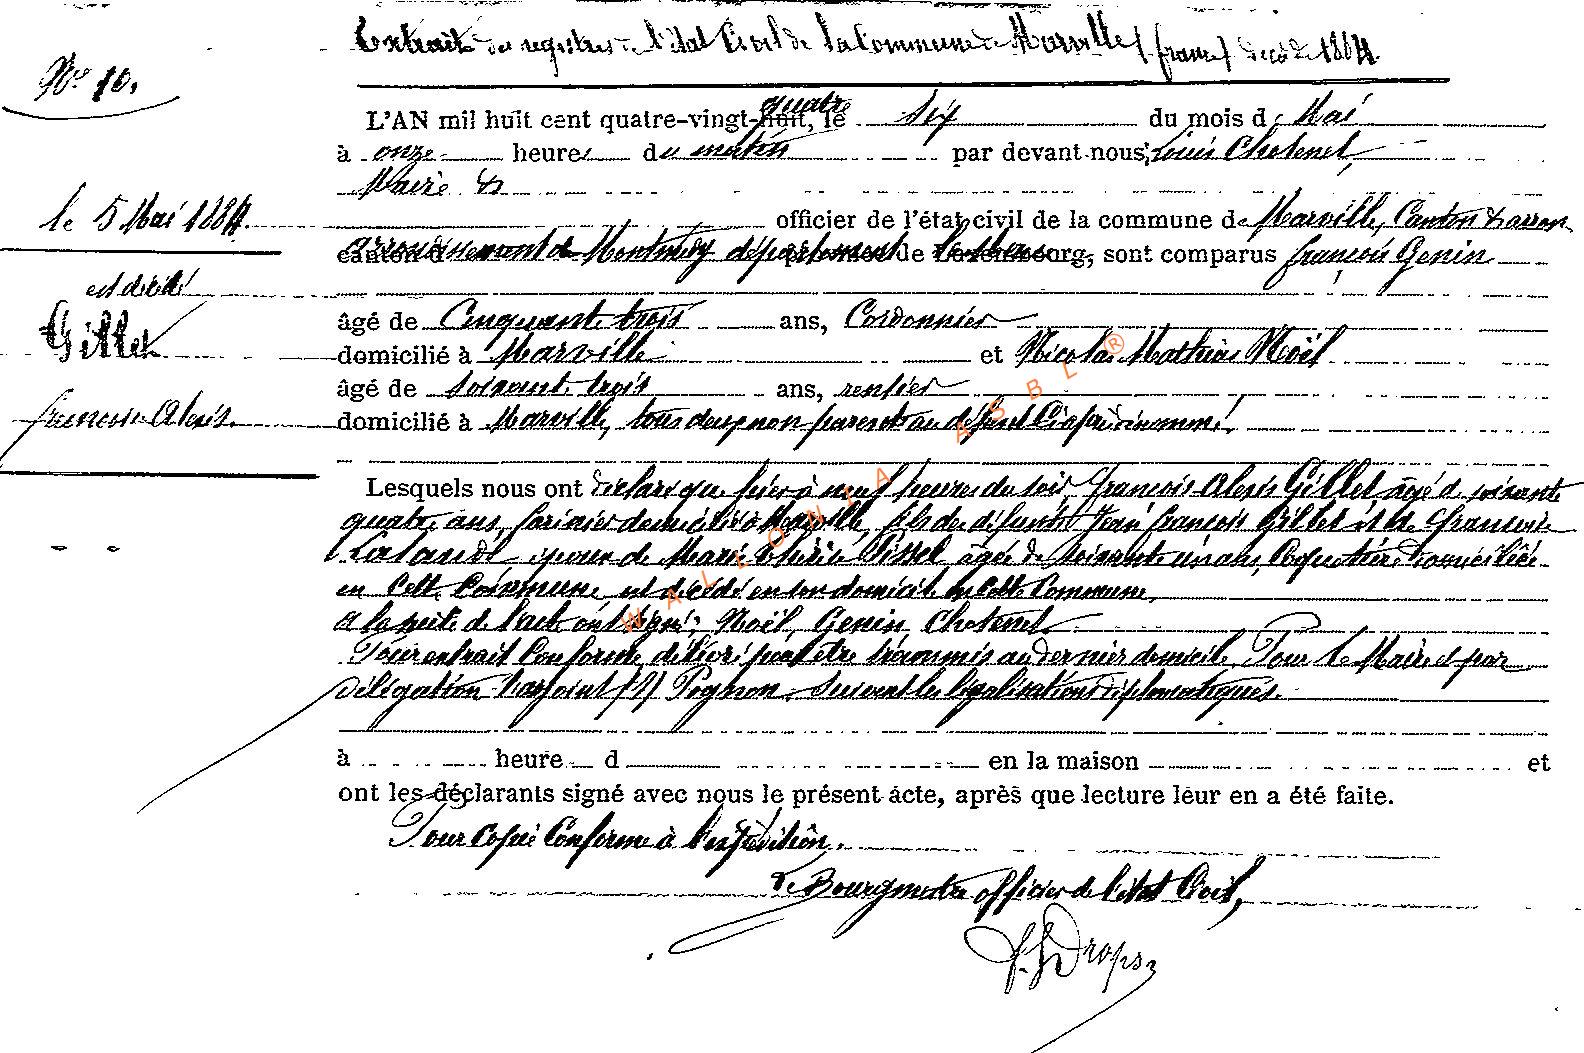 Extrait des registres de l'état Civil de la Commune de Marville (france) décès de 1884.
No 10.
L'AN mil huit cent quatre-vingt-huit, quatre le six du mois de Mai
à onze heures du matin par devant nous, Louis Chotenet,
Maire &
le 5 Mai 1884.
officier de l'état civil de la commune de Marville, Canton & arron
canton d arrondissement de Montmédy département de Luxembourg, sont comparus françois Genin
est décédé
âgé de Cinquante trois ans, Cordonnier
Gillet
domicilié à Marville et Nicolas Mathias Noël
âgé de soixante trois ans, rentier
françois Alexis.
domicilié à Marville, tous deux non parents au défunt Ci après dénommé.
Lesquels nous ont déclaré que hier à neuf heures du soir, François Alexis Gillet, âgé de soixante
quatre ans, farinier domicilié à Marville, fils des défunts Jean françois Gillet et de françoise
Lalande, époux de Marie Thérèse âgée de soixante un ans, domiciliée
en Cette Commune, est décédé en son domicile en Cette Commune.
A la suite de l'acte ont signé: Noël, Genin, Chotenet.
Pour extrait Conforme, délivré pour être transmis au dernier domicile, Pour le Maire et par
délégation l'adjoint (s) Pognon. Suivent les légalisations diplomatiques.
à heure d en la maison et
ont les déclarants signé avec nous le présent acte, après que lecture leur en a été faite.
Pour Copie Conforme à l'expédition.
Le Bourgmestre officier de l'état Civil,
Drops
WALLONIA ASBL ®